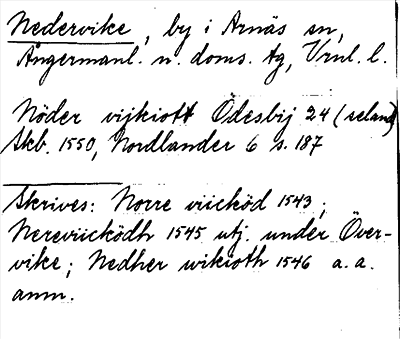 Nedervike, by i Arnäs sn,
Ångermanl. n. doms. tg, Vrnl. l.
Nöder vijkiott Ödesbij 24 (seland)
Skb. 1550, Nordlander 6 s. 187
Skrives: Norre viicköd 1543;
Nereviicködh 1545 utj. under Över-
vike; Nedher wikioth 1546 a. a.
anm.